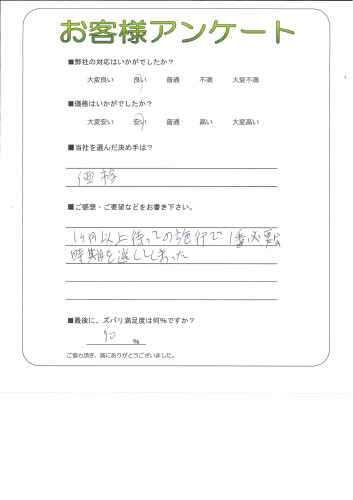 お客様アンケート
■弊社の対応はいかがでしたか？
大変良い 良い 普通 不満 大変不満
■価格はいかがでしたか？
大変安い 安い 普通 高い 大変高い
■当社を選んだ決め手は？
価格
■ご感想・ご要望などをお書き下さい。
1ヶ月以上待っての施行で1番必要な
時期を逃してしまった
■最後に、ズバリ満足度は何%ですか？
90
%
ご協力頂き、誠にありがとうございました。